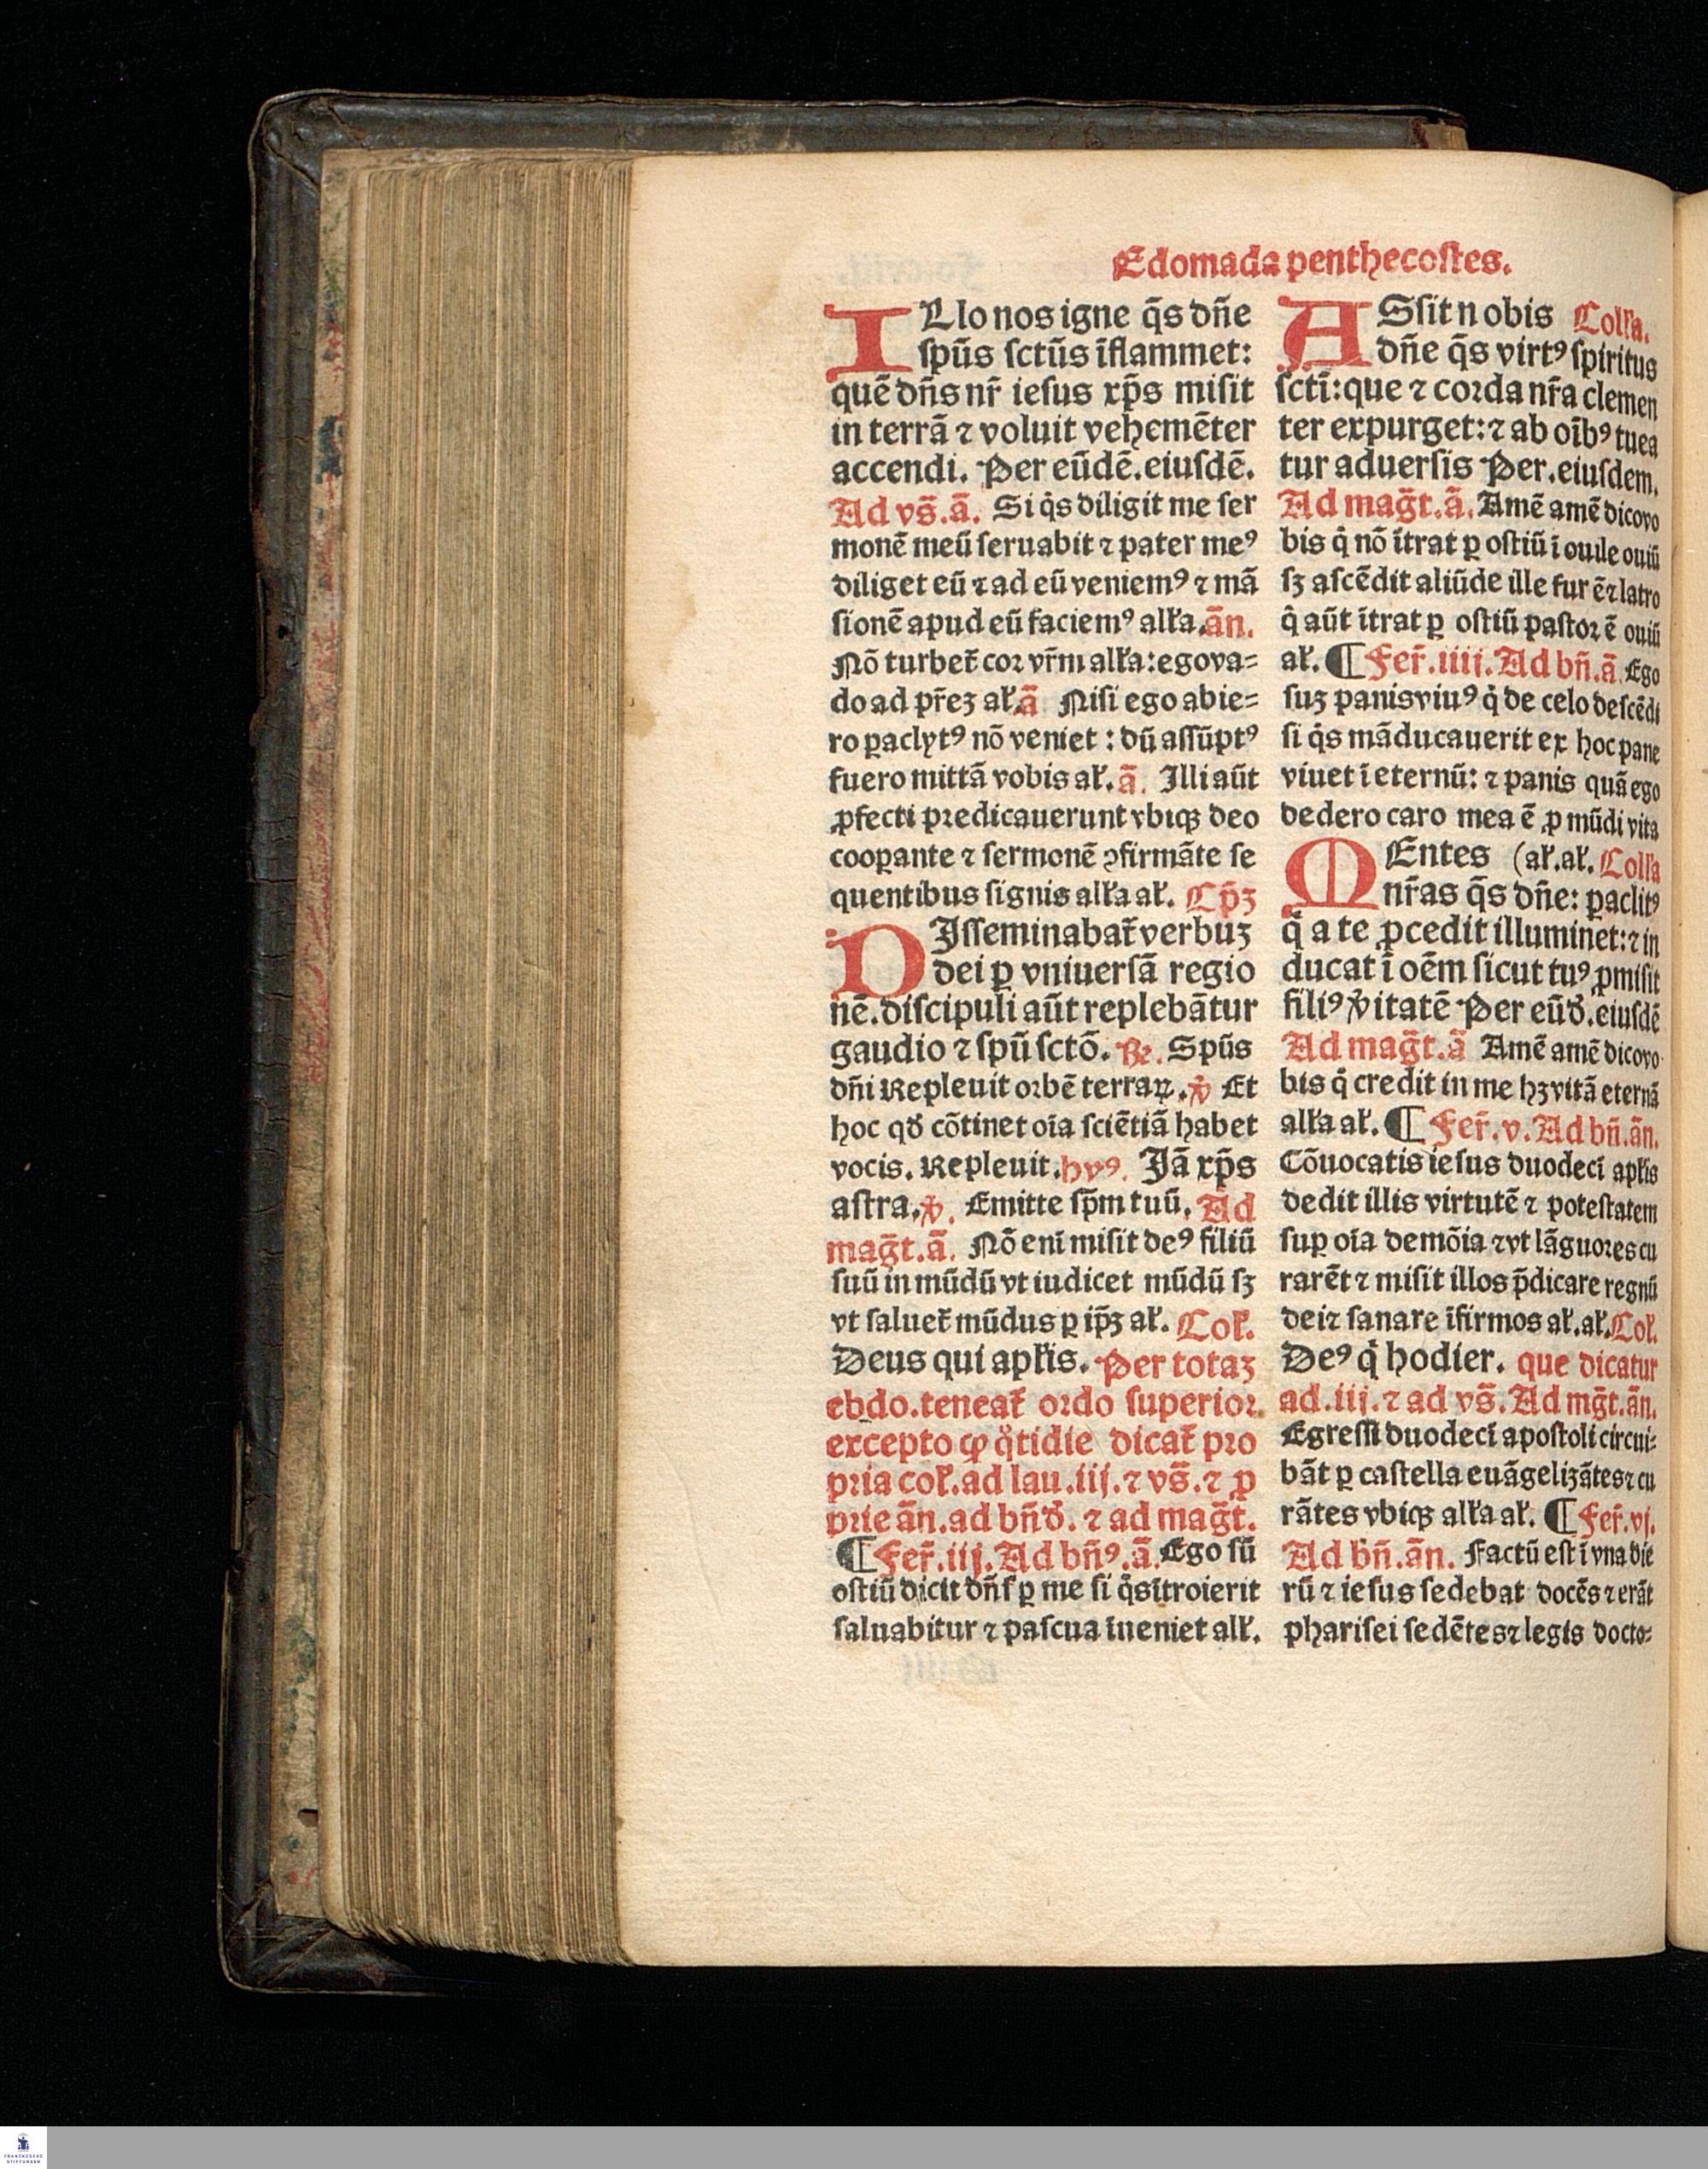 Edomada penthecostes.
ILlo nos igne q̄s dn̄e
spūs sctūs īflammet:
quē dn̄s nr̄ iesus xp̄s misit
in terrā ⁊ voluit vehemēter
accendi. Per eūdē. eiusdē.
Ad vs̄. ā. Si q̇s diligit me ser
monē meū seruabit ⁊ pater meꝰ
diliget eū ⁊ ad eū veniemꝰ ⁊ mā
sionē apud eū faciemꝰ alła. ān.
Nō turbet̄ cor vr̄m alła: ego va=
do ad pr̄eꝫ ał. ā Nisi ego abie=
ro ꝑaclytꝰ nō veniet : dū assūptꝰ
fuero mittā vobis ał. ā. Illi aūt
ꝓfecti predicauerunt vbiqꝫ deo
cooꝑante ⁊ sermonē ꝯfirmāte se
quentibus signis alła ał. Cp̄ꝫ
DIsseminabat̄ verbuꝫ
dei ꝑ vniuersā regio
nē. discipuli aūt replebātur
gaudio ⁊ spū sctō. ℞. Spūs
dn̄i Repleuit orbē terraꝝ. ℣ Et
hoc qd̄ cōtinet oīa sciētiā habet
vocis. Repleuit. hyꝰ. Jā xp̄s
astra. ℣. Emitte sp̄m tuū. Ad
mag̅t. ā. Nō enī misit deꝰ filiū
suū in mūdū vt iudicet mūdū sꝫ
vt saluet̄ mūdus ꝑ ip̄ꝫ ał. Coł.
Deus qui apłis. Per totaꝫ
ebdo. teneat̄ ordo superior
excepto ꝙ q̇tidie dicat̄ pro
pria coł. ad lau. iij. ⁊ vs̄. ⁊ ꝓ
prie ān. ad bn̄d̄. ⁊ ad mag̅t.
¶ Fer̄. iij. Ad bn̄ꝰ. ā. Ego sū
ostiū dicit dn̄s ꝑ me si q̇s ītroierit
saluabitur ⁊ pascua īueniet alł.
ASsit nobis Colła.
dn̄e q̄s virtꝰ spiritus
sctī: que ⁊ corda nr̄a clemen
ter expurget: ⁊ ab oībꝰ tuea
tur aduersis Per. eiusdem.
Ad mag̅t. ā. Amē amē dico vo
bis q̇ nō ītrat ꝑ ostiū ī ouile ouiū
sꝫ ascēdit aliūde ille fur ē ⁊ latro
q̇ aūt ītrat ꝑ ostiū pastor ē ouiū
ał. ¶ Fer̄. iiij. Ad bn̄. ā. Ego
suꝫ panis viuꝰ q̇ de celo descēdi
si q̇s māducauerit ex hoc pane
viuet ī eternū: ⁊ panis quā ego
dedero caro mea ē ꝓ mūdi vita
MEntes (ał. ał. Colła
nr̄as q̄s dn̄e: ꝑaclitꝰ
q̇ a te ꝓcedit illuminet: ⁊ in
ducat ī oēm sicut tuꝰ ꝓmisit
filiꝰ ꝟitatē Per eūd̄. eiusdē
Ad mag̅t. ā Amē amē dico vo
bis q̇ credit in me hꝫ vitā eternā
alła ał. ¶ Fer̄. v. Ad bn̄. ān.
Cōuocatis iesus duodecī apłis
dedit illis virtutē ⁊ potestatem
suꝑ oīa demōia ⁊ vt lāguores cu
rarēt ⁊ misit illos p̄dicare regnū
dei ⁊ sanare īfirmos ał. ał. Coł.
Deꝰ q̇ hodier. que dicatur
ad. iij. ⁊ ad vs̄. Ad mg̅t. ān.
Egressi duodecī apostoli circui=
bāt ꝑ castella euāgelizātes ⁊ cu
rātes vbiqꝫ alła ał. ¶ Fer̄. vj.
Ad bn̄. ān. Factū est ī vna die
rū ⁊ iesus sedebat docēs ⁊ erāt
pharisei sedētes ⁊ legis docto=
FRANCKESCHE
STIFTUNGEN